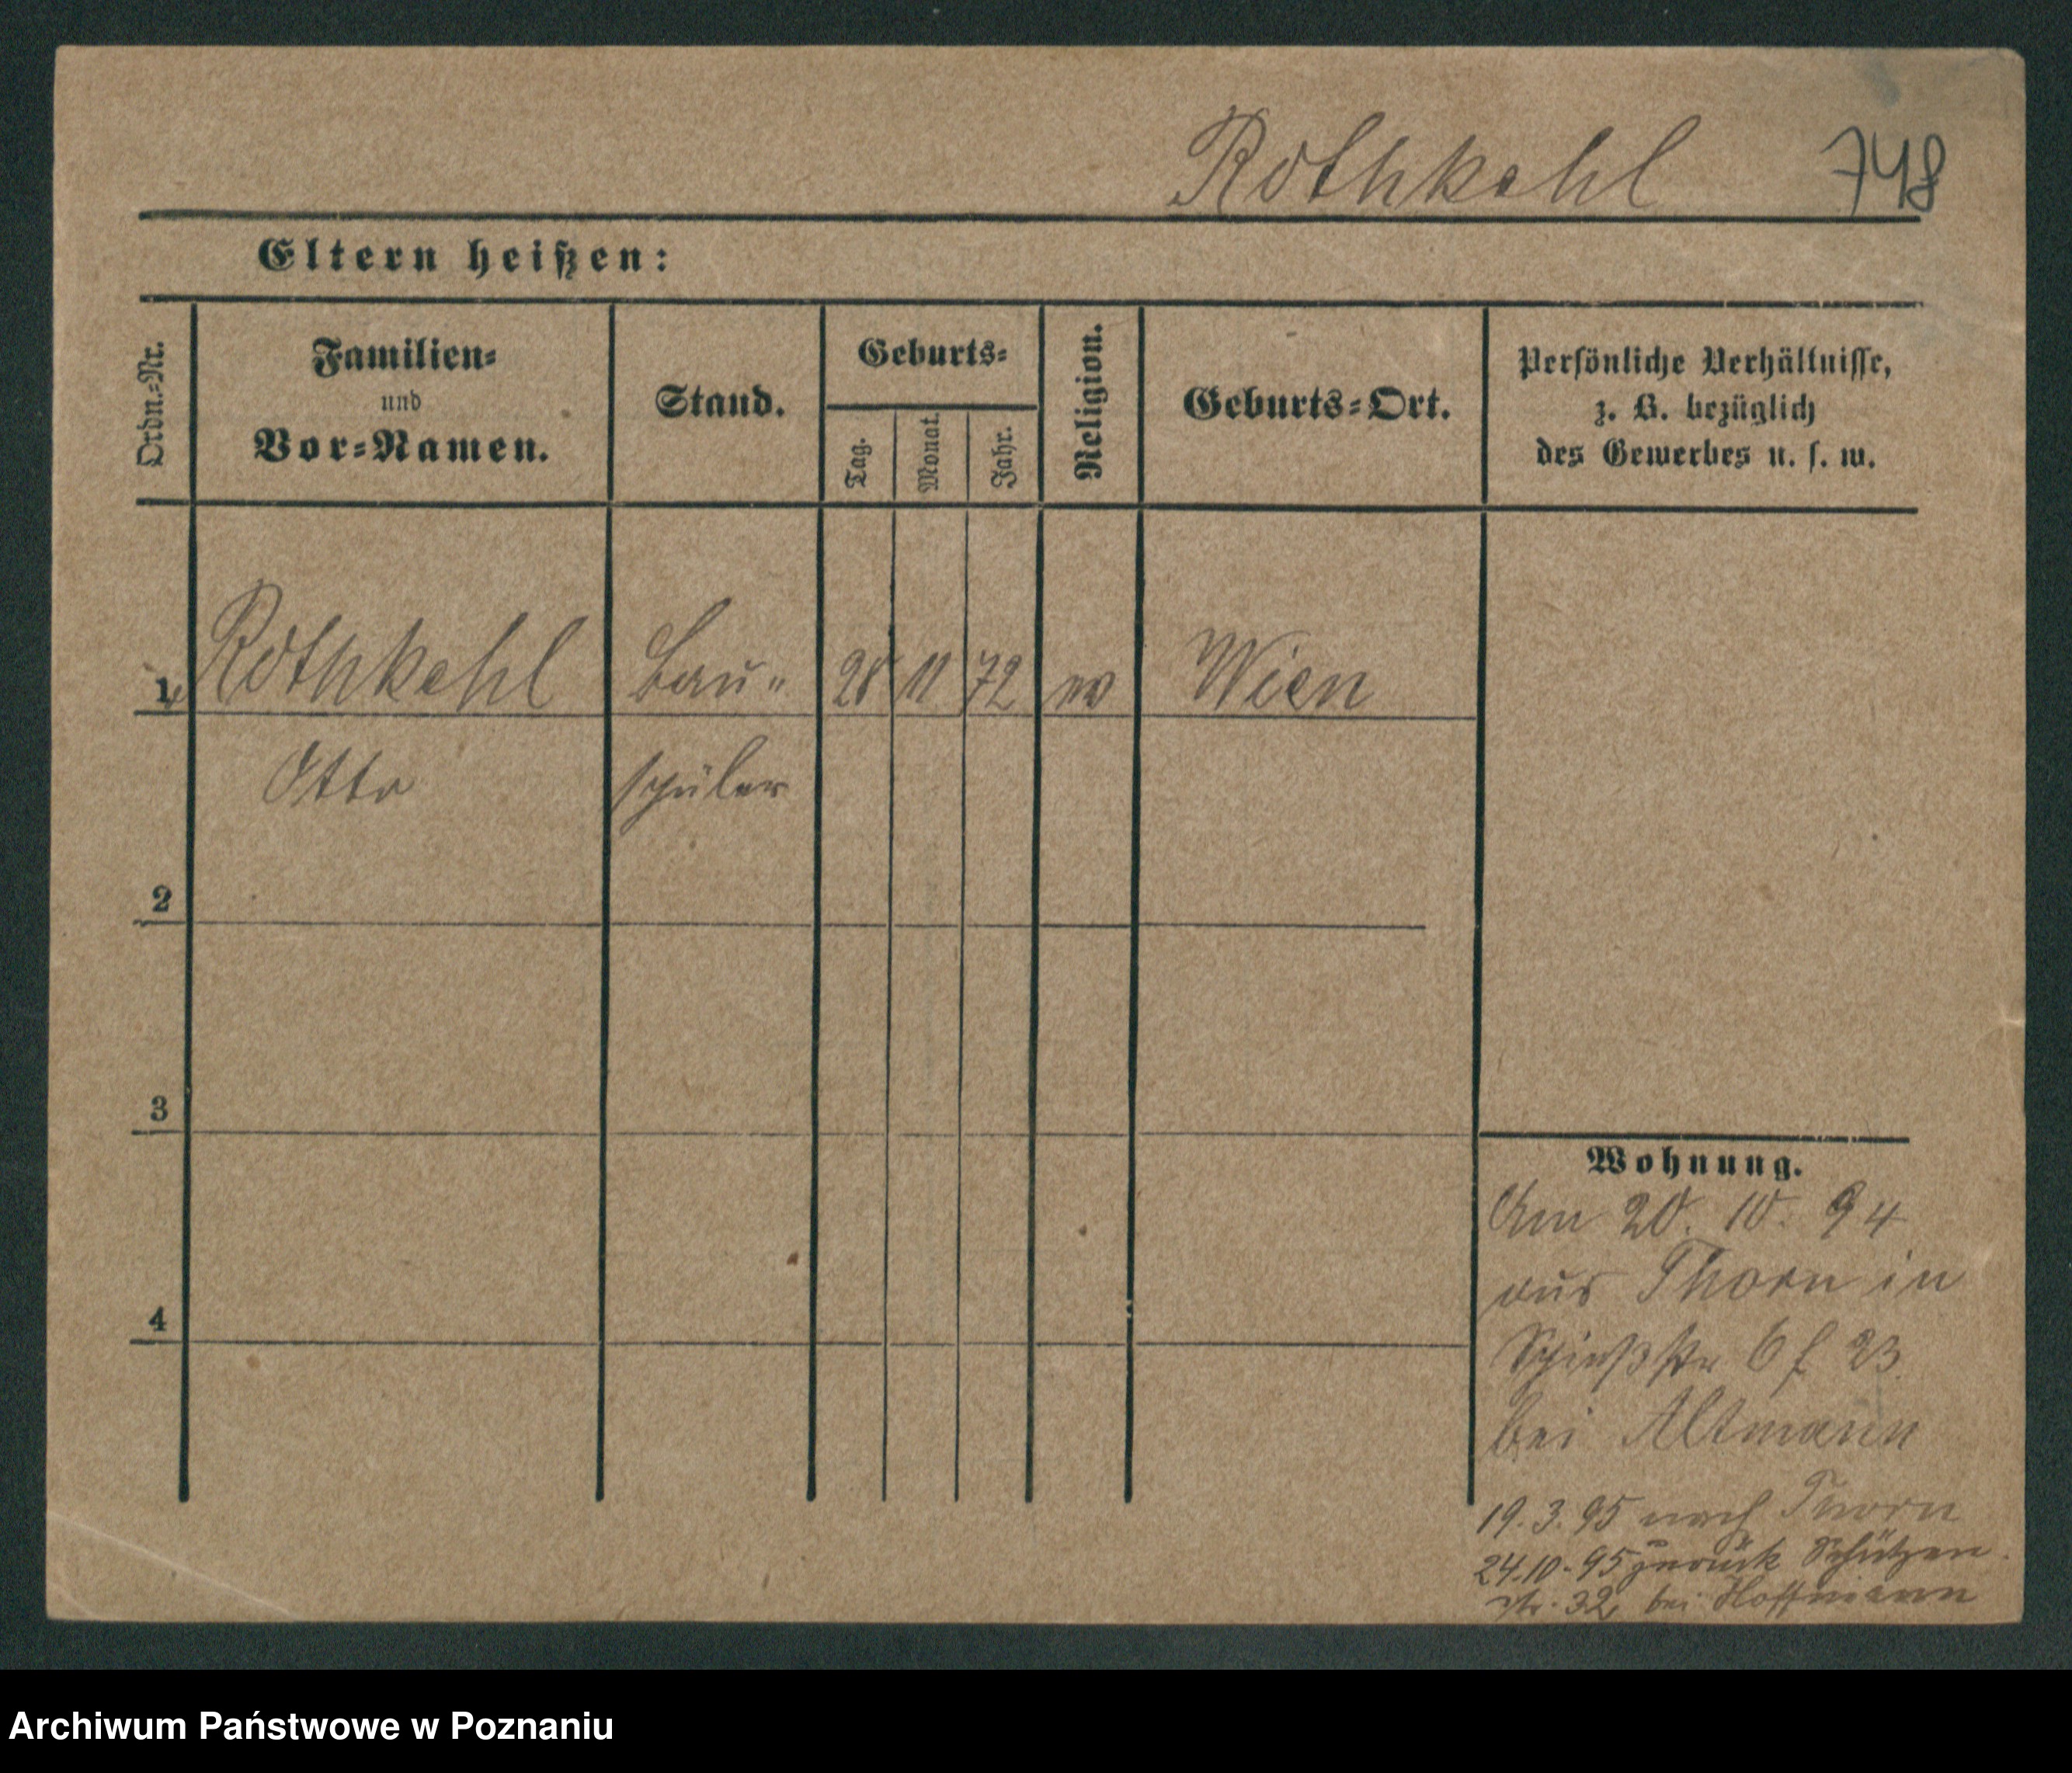 Rothkehl 748
Eltern heißen:
Ordn.-Nr.
Familien-
und
Vor-Namen.
Stand.
Geburts-
Tag.
Monat.
Jahr.
Religion.
Geburts-Ort.
Persönliche Verhältnisse,
z. B. bezüglich
des Gewerbes u. s. w.
1 Rothkehl Bau- 28 11 72 ev Wien
Otto schüler
2
3
4
Wohnung.
Am 20. 10. 94
aus Thorn in
6 f 23
bei Altmann
19. 3. 95 nach Thorn
24.10.95 zurück Schützen
str. 32 bei Hoffmann
Archiwum Państwowe w Poznaniu